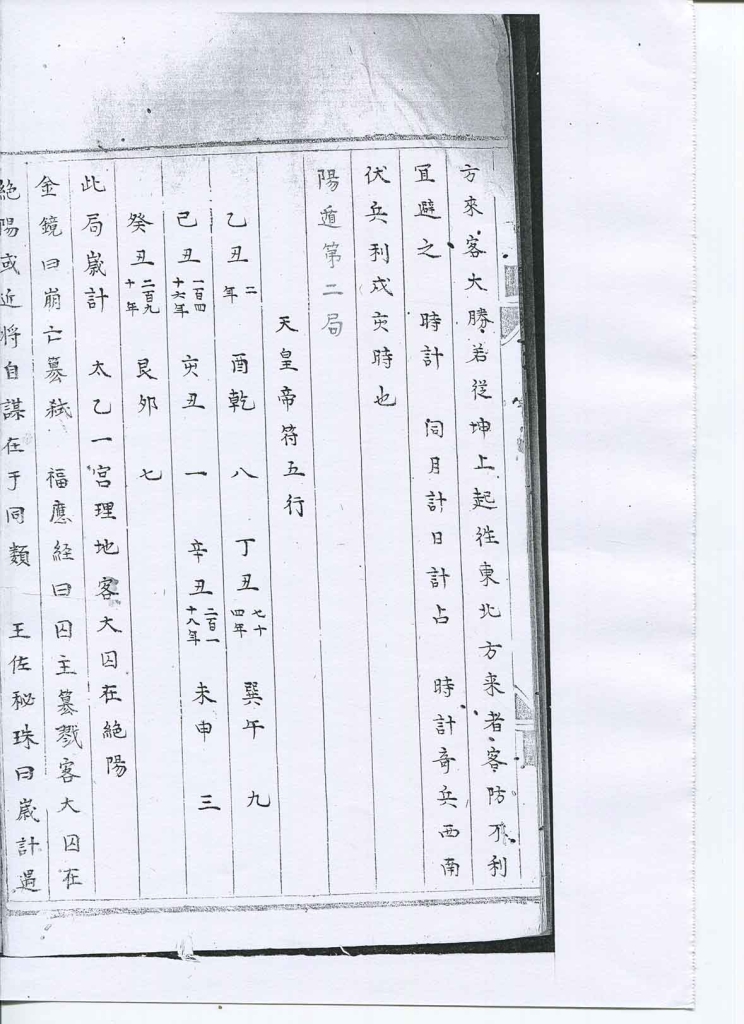 方來客大勝若從坤上起徃東北方来者客防不利
宜避之 時計 同月計日計占 時計奇兵西南
伏兵利戍亥時也
陽遁第二局
天皇帝符五行
乙丑二年 酉乾 八 丁丑七十四年 巽午 九
己丑一百四十六年 亥丑 一 辛丑二百一十八年 未申 三
癸丑二百九十年 艮夘 七
此局嵗計 太乙一宮理地客大囚在絶陽
金鏡曰崩亡篡弑 福應経曰囚主篡戮客大囚在
絶陽或近将自謀在于同類 王佐秘珠曰嵗計遇